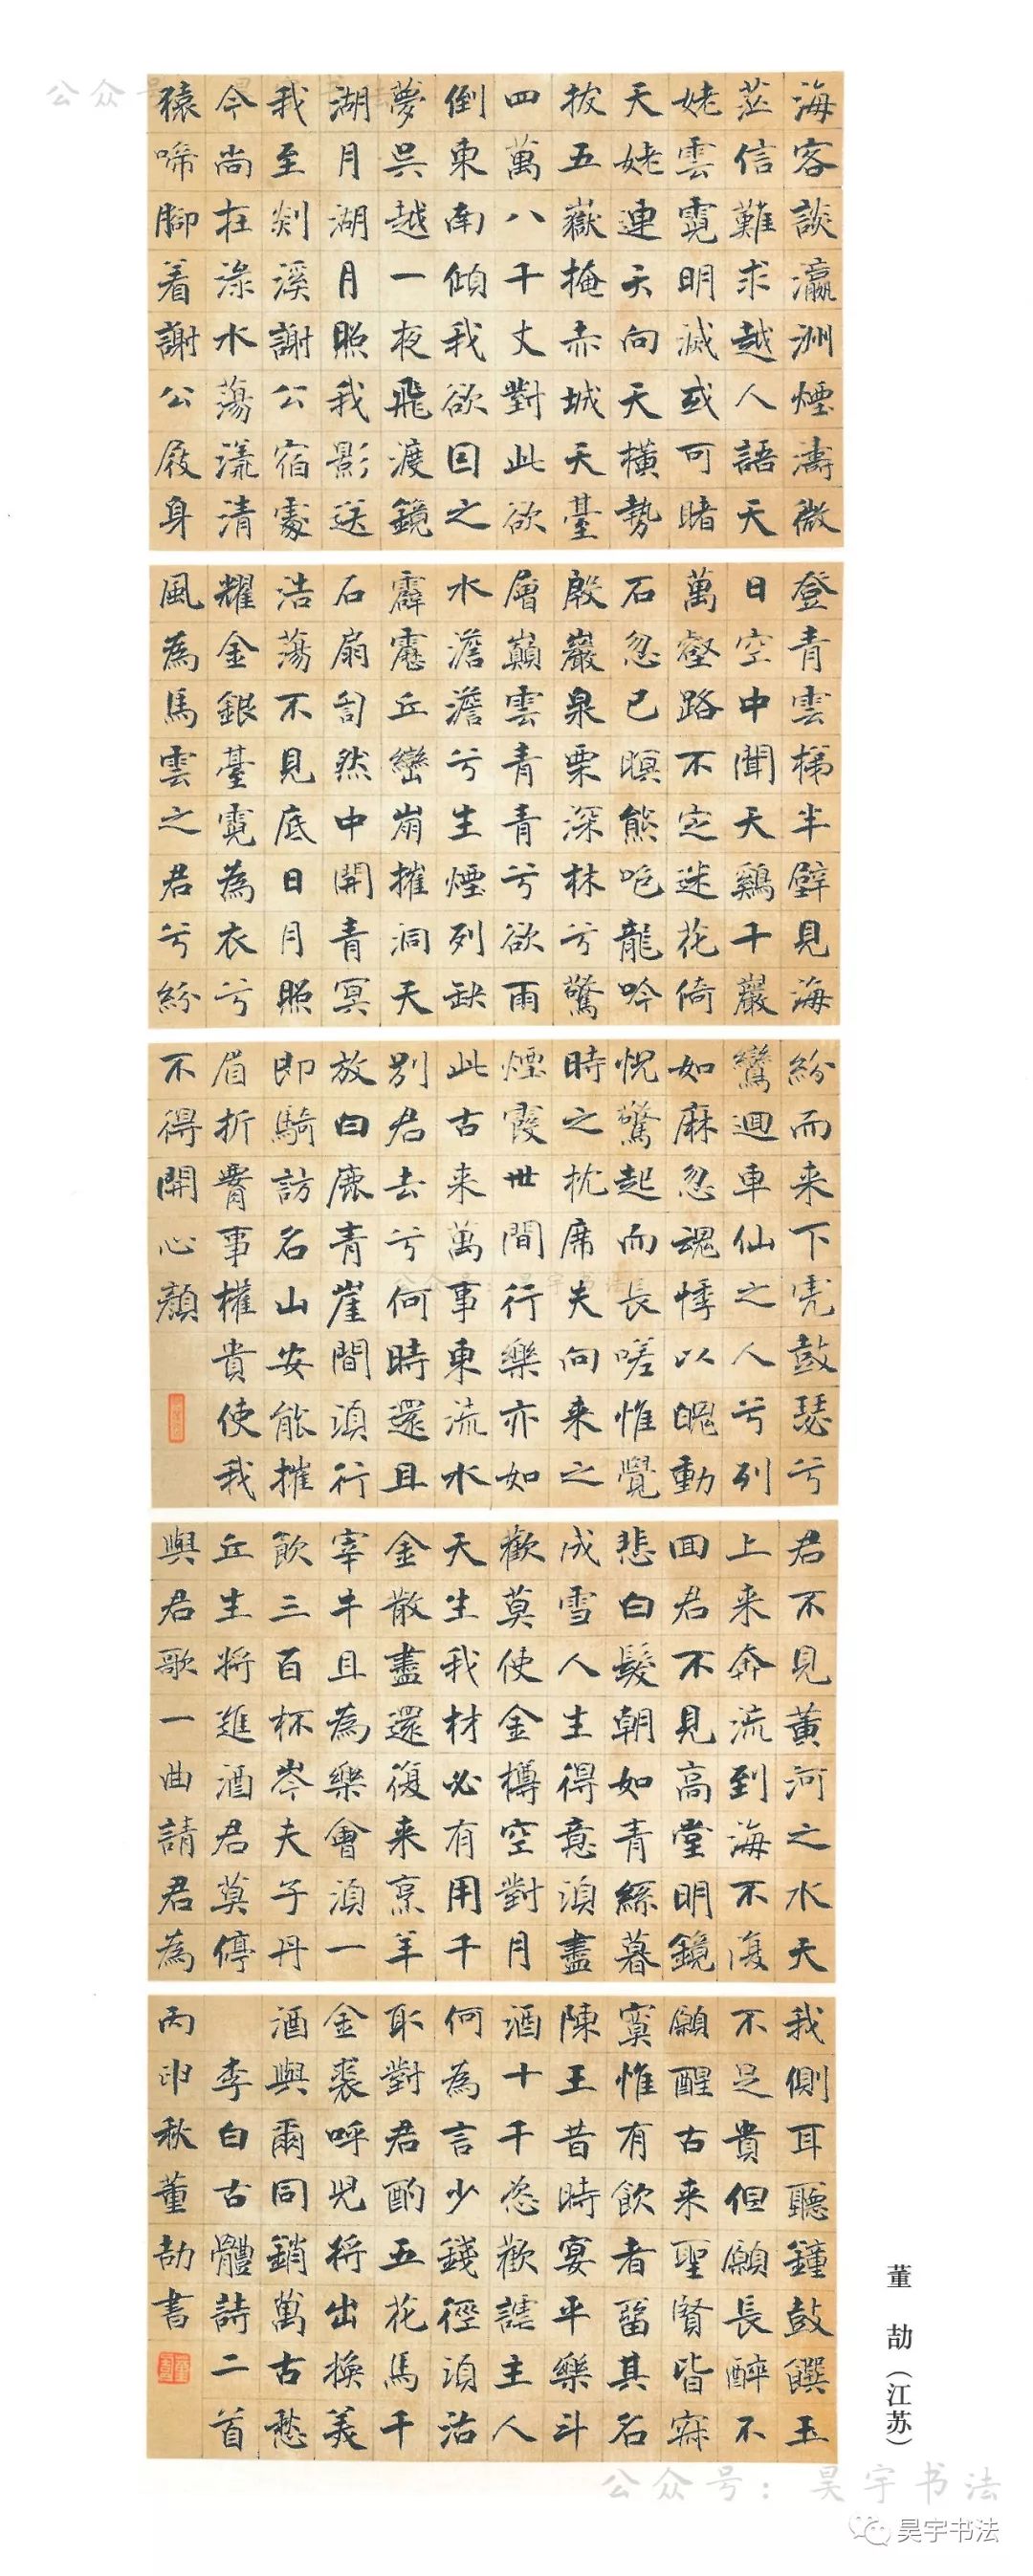 海客談瀛洲煙濤微
茫信難求越人語天
姥雲霓明滅或可睹
天姥連天向天橫勢
拔五嶽掩赤城天臺
四萬八千丈對此欲
倒東南傾我欲因之
夢吳越一夜飛渡鏡
湖月湖月照我影送
我至剡溪謝公宿處
今尚在淥水蕩漾清
猿啼腳着謝公屐身
登青雲梯半壁見海
日空中聞天鷄千巖
萬壑路不定迷花倚
石忽已暝熊咆龍吟
殷巖泉栗深林兮驚
層巔雲青青兮欲雨
水澹澹兮生煙列缺
霹靂丘巒崩摧洞天
石扇訇然中開青冥
浩蕩不見底日月照
耀金銀臺霓為衣兮
風為馬雲之君兮紛
紛而来下虎鼓瑟兮
鸞迴車仙之人兮列
如麻忽魂悸以魄動
怳驚起而長嗟惟覺
時之枕席失向来之
煙霞世間行樂亦如
此古来萬事東流水
別君去兮何時還且
放白鹿青崖間湏行
即騎訪名山安能摧
眉折腰事權貴使我
不得開心顏
君不見黃河之水天
上来奔流到海不復
回君不見高堂明鏡
悲白髮朝如青絲暮
成雪人生得意湏盡
歡莫使金樽空對月
天生我材必有用千
金散盡還復来烹羊
宰牛且為樂會湏一
飲三百杯岑夫子丹
丘生將進酒君莫停
與君歌一曲請君為
我側耳聽鐘鼓饌玉
不足貴但願長醉不
願醒古来聖賢皆寂
寞惟有飲者留其名
陳王昔時宴平樂斗
酒十千恣歡謔主人
何為言少錢徑湏沽
取對君酌五花馬千
金裘呼兒將出換美
酒與爾同銷萬古愁
李白古體詩二首
丙申秋董劼書
董劼（江苏）
公众号：昊宇书法
昊宇书法